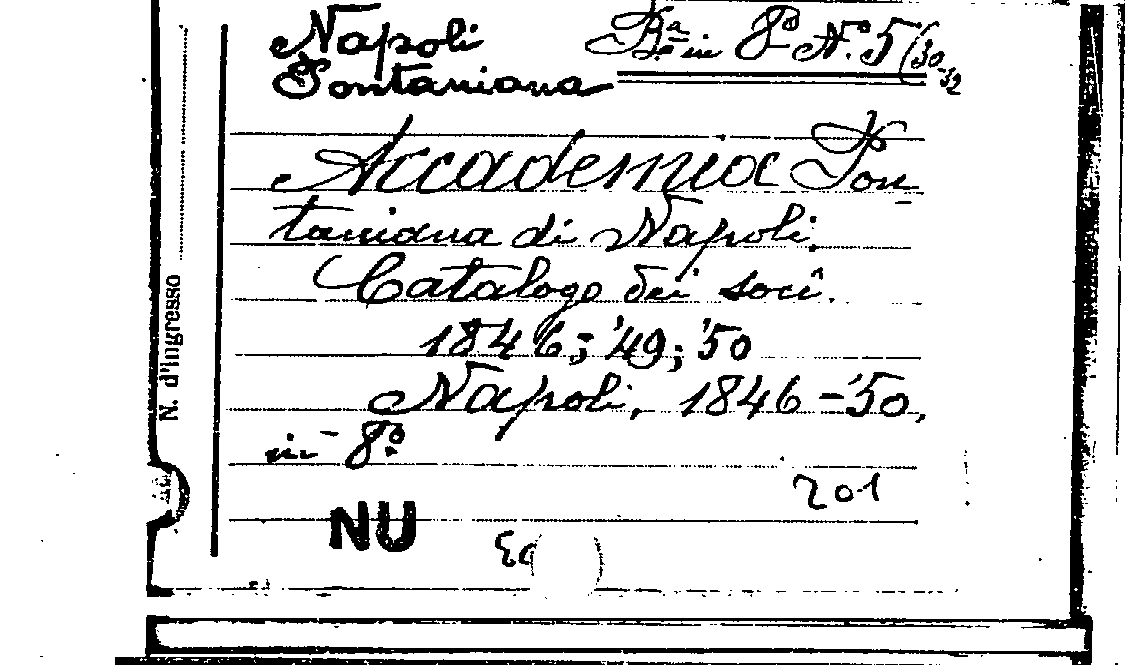 Napoli Bª in 8º N.º 5/30-32
Pontaniana
Accademia Pon
taniana di Napoli.
Catalogo dei soci.
1846; '49; '50
Napoli, 1846-'50,
in-8º.
201
NU
N. d'ingresso